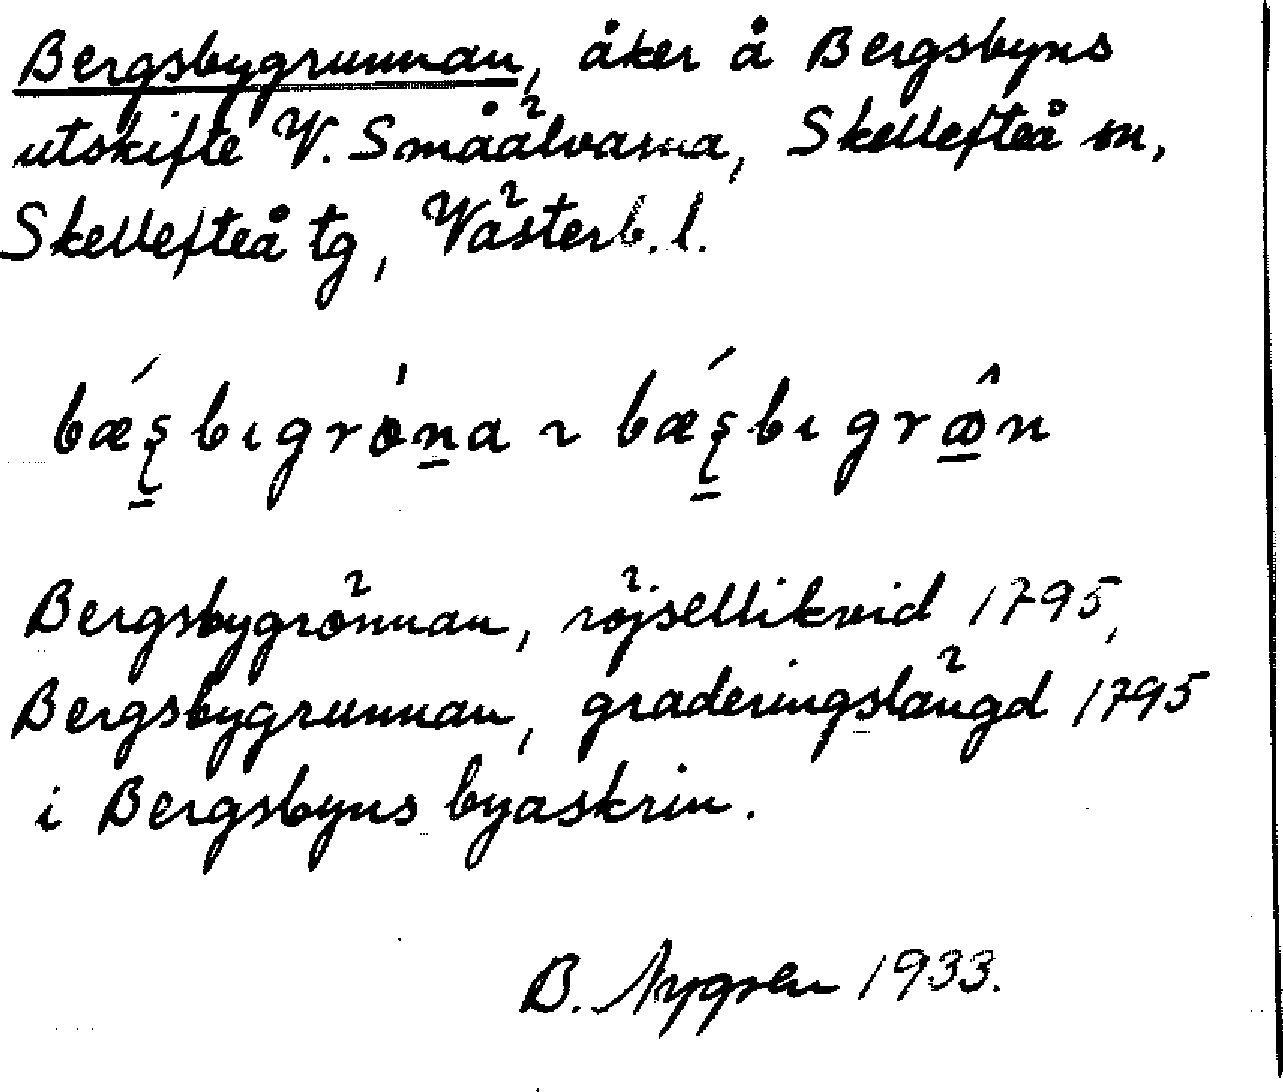 Bergsbygrunnan, åker å Bergsbyns
utskifte V. Småälvarna, Skellefteå sn,
Skellefteå tg, Västerb. l.
Bergsbygrönnan, röjsellikvid 1795,
Bergsbygrunnan, graderingslängd 1795
i Bergsbyns byaskrin.
B. Nygren 1933.